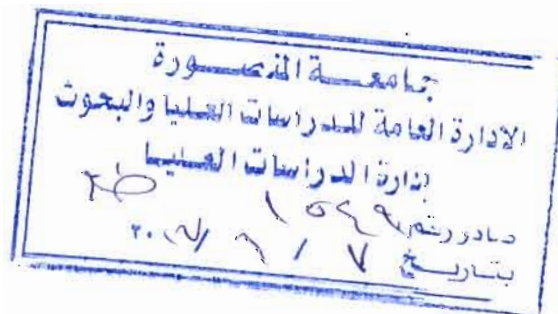 جامعة المنصورة
الادارة العامة للدراسات العليا والبحوث
إدارة الدراسات العليا
صادر رقم ١٥٤٩
بتاريخ ٧ / ٦ /